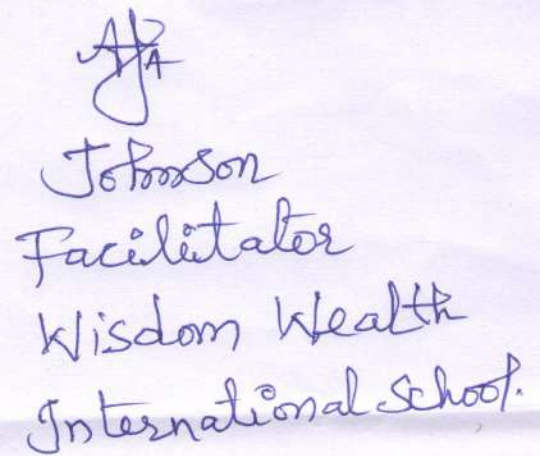 Johnson
Facilitator
Wisdom Wealth
International School.